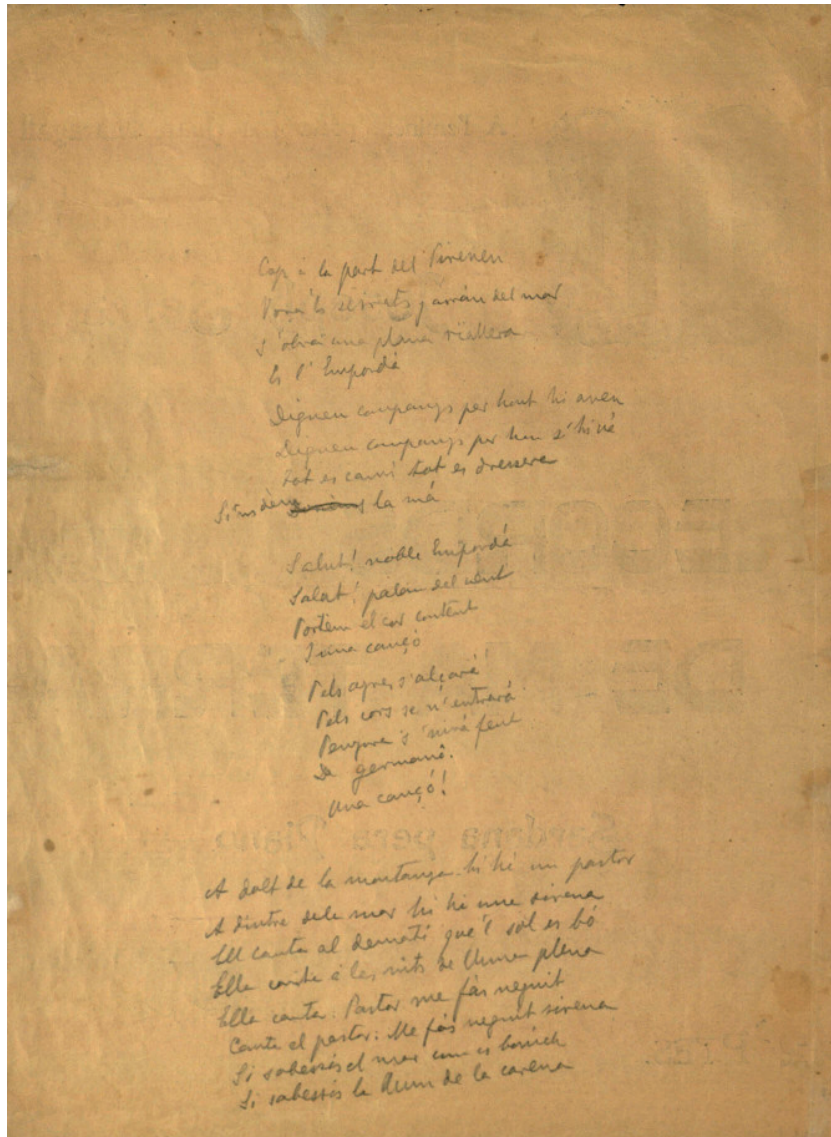 Cap à la part del Pirineu
Vora'ls serrats y arrán del mar
S'obre una plana riallera
Es l'Empordá
Digueu companys per hont hi aneu
Digueu companys per hon s'hi vá
Tot es camí tot es dressera
Si'ns dèm la má
Salut! noble Empordá
Salut! palau del vent
Portem el cor content
I una cançó
Pels ayres s'alçará
Pels cors se n'entrará
Penyora s'nirá fent
De germanó.
Una cançó!
A dalt de la montanya hi hà un pastor
A dintre dela mar hi hà una sirena
Ell canta al dematí que'l sol es bó
Ella canta à les nits de lluna plena
Ella canta: Pastor me fas neguit
Canta el pastor: Me fas neguit sirena
Si sabessis el mar com es bonich
Si sabessis la llum de la carena